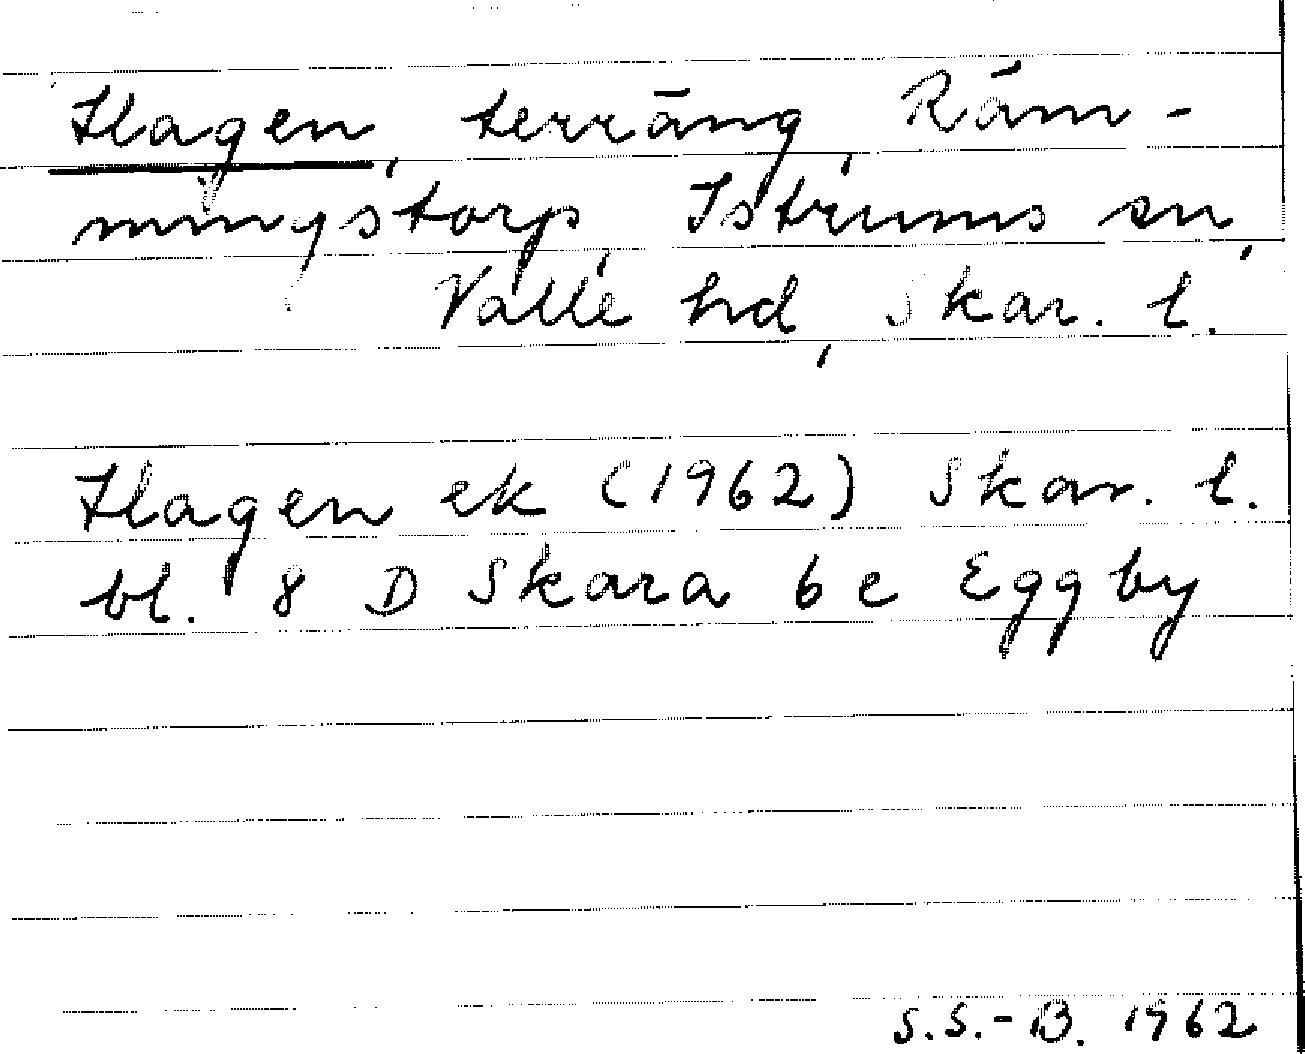 Hagen, terräng, Räm-
mingstorp, Istrums sn,
Valle hd, Skar. l.
Hagen ek (1962) Skar. l.
bl. 8 D Skara 6 e Eggby
S.S.-B. 1962